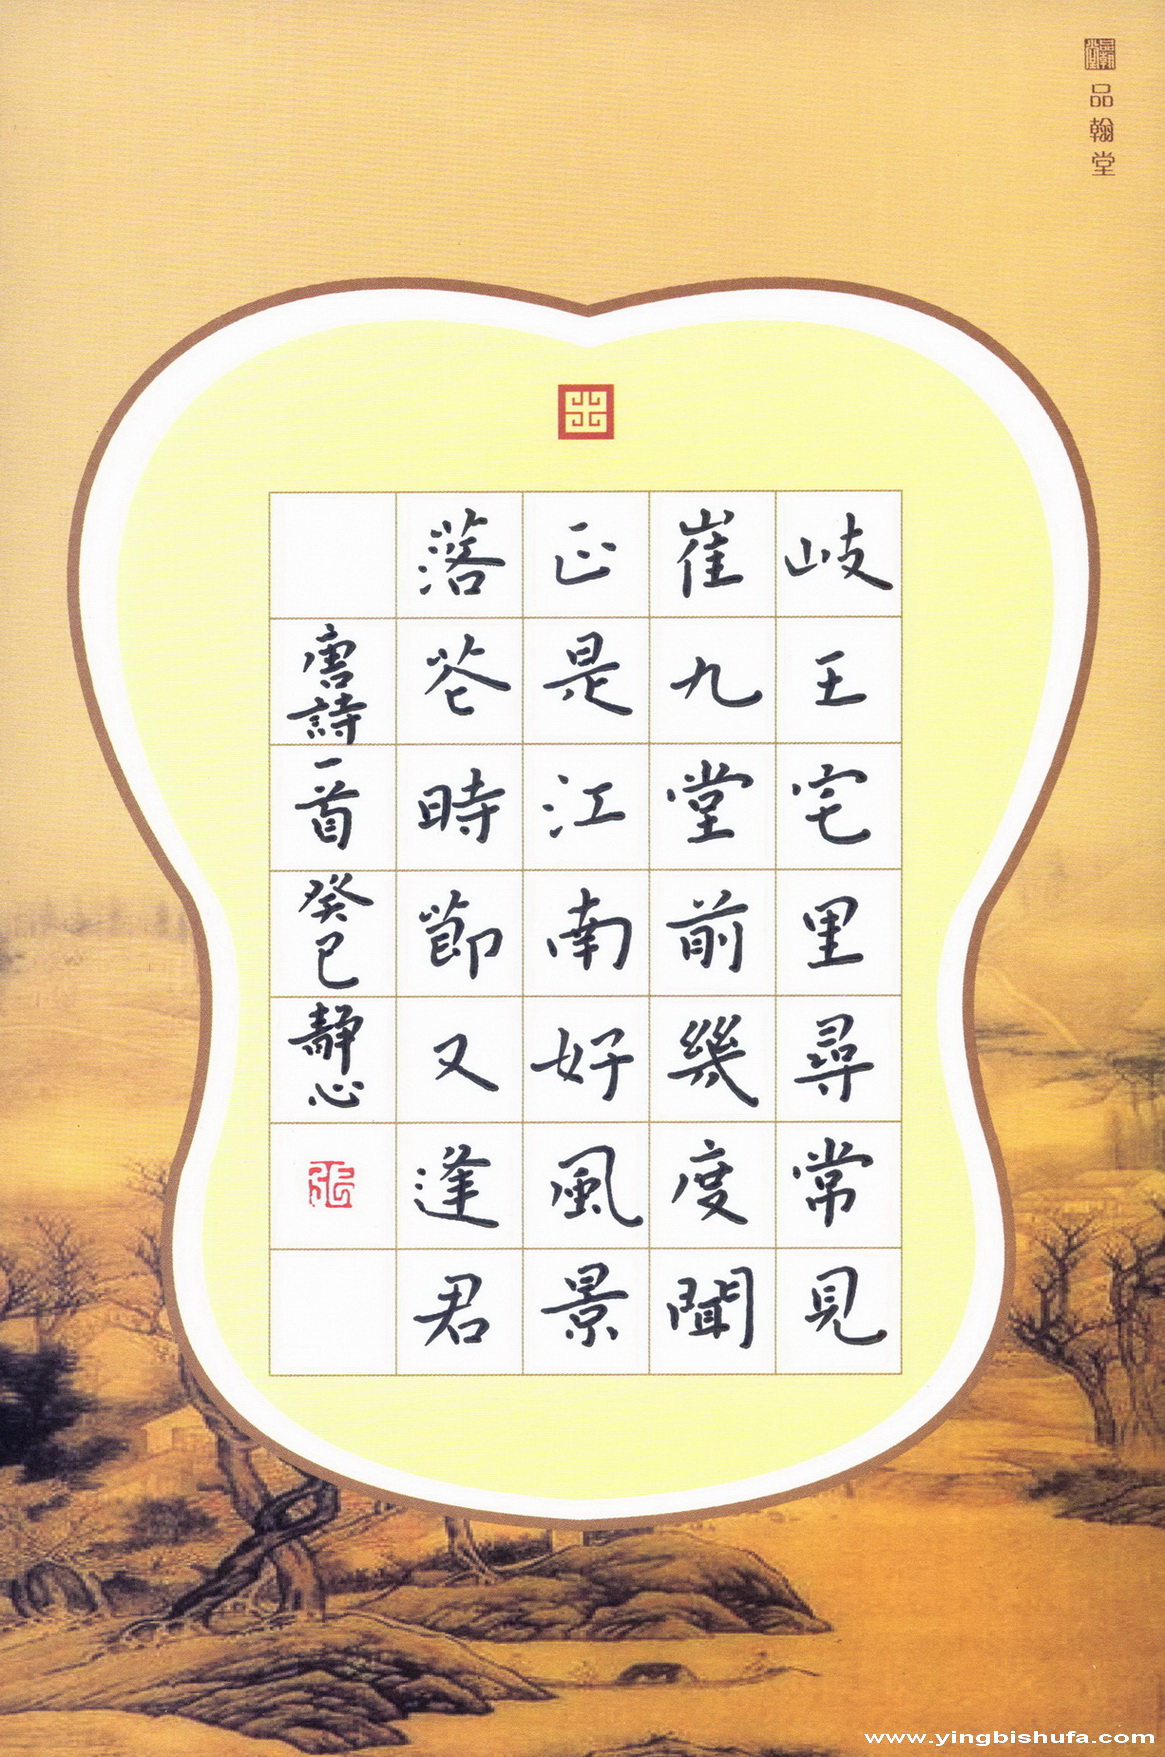 品翰堂
岐王宅里尋常見
崔九堂前幾度聞
正是江南好風景
落花時節又逢君
唐詩一首癸巳靜心
www.yingbishufa.com